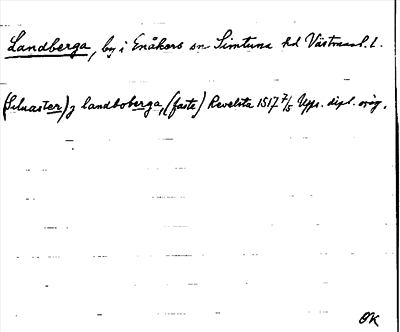 Landberga, by i Enåkers sn Simtuna hd Västmanl. l.
(Siluaster) j landboberga, (faste) Revelsta 1517 7/5 Upps. dipl. orig.
ÖK